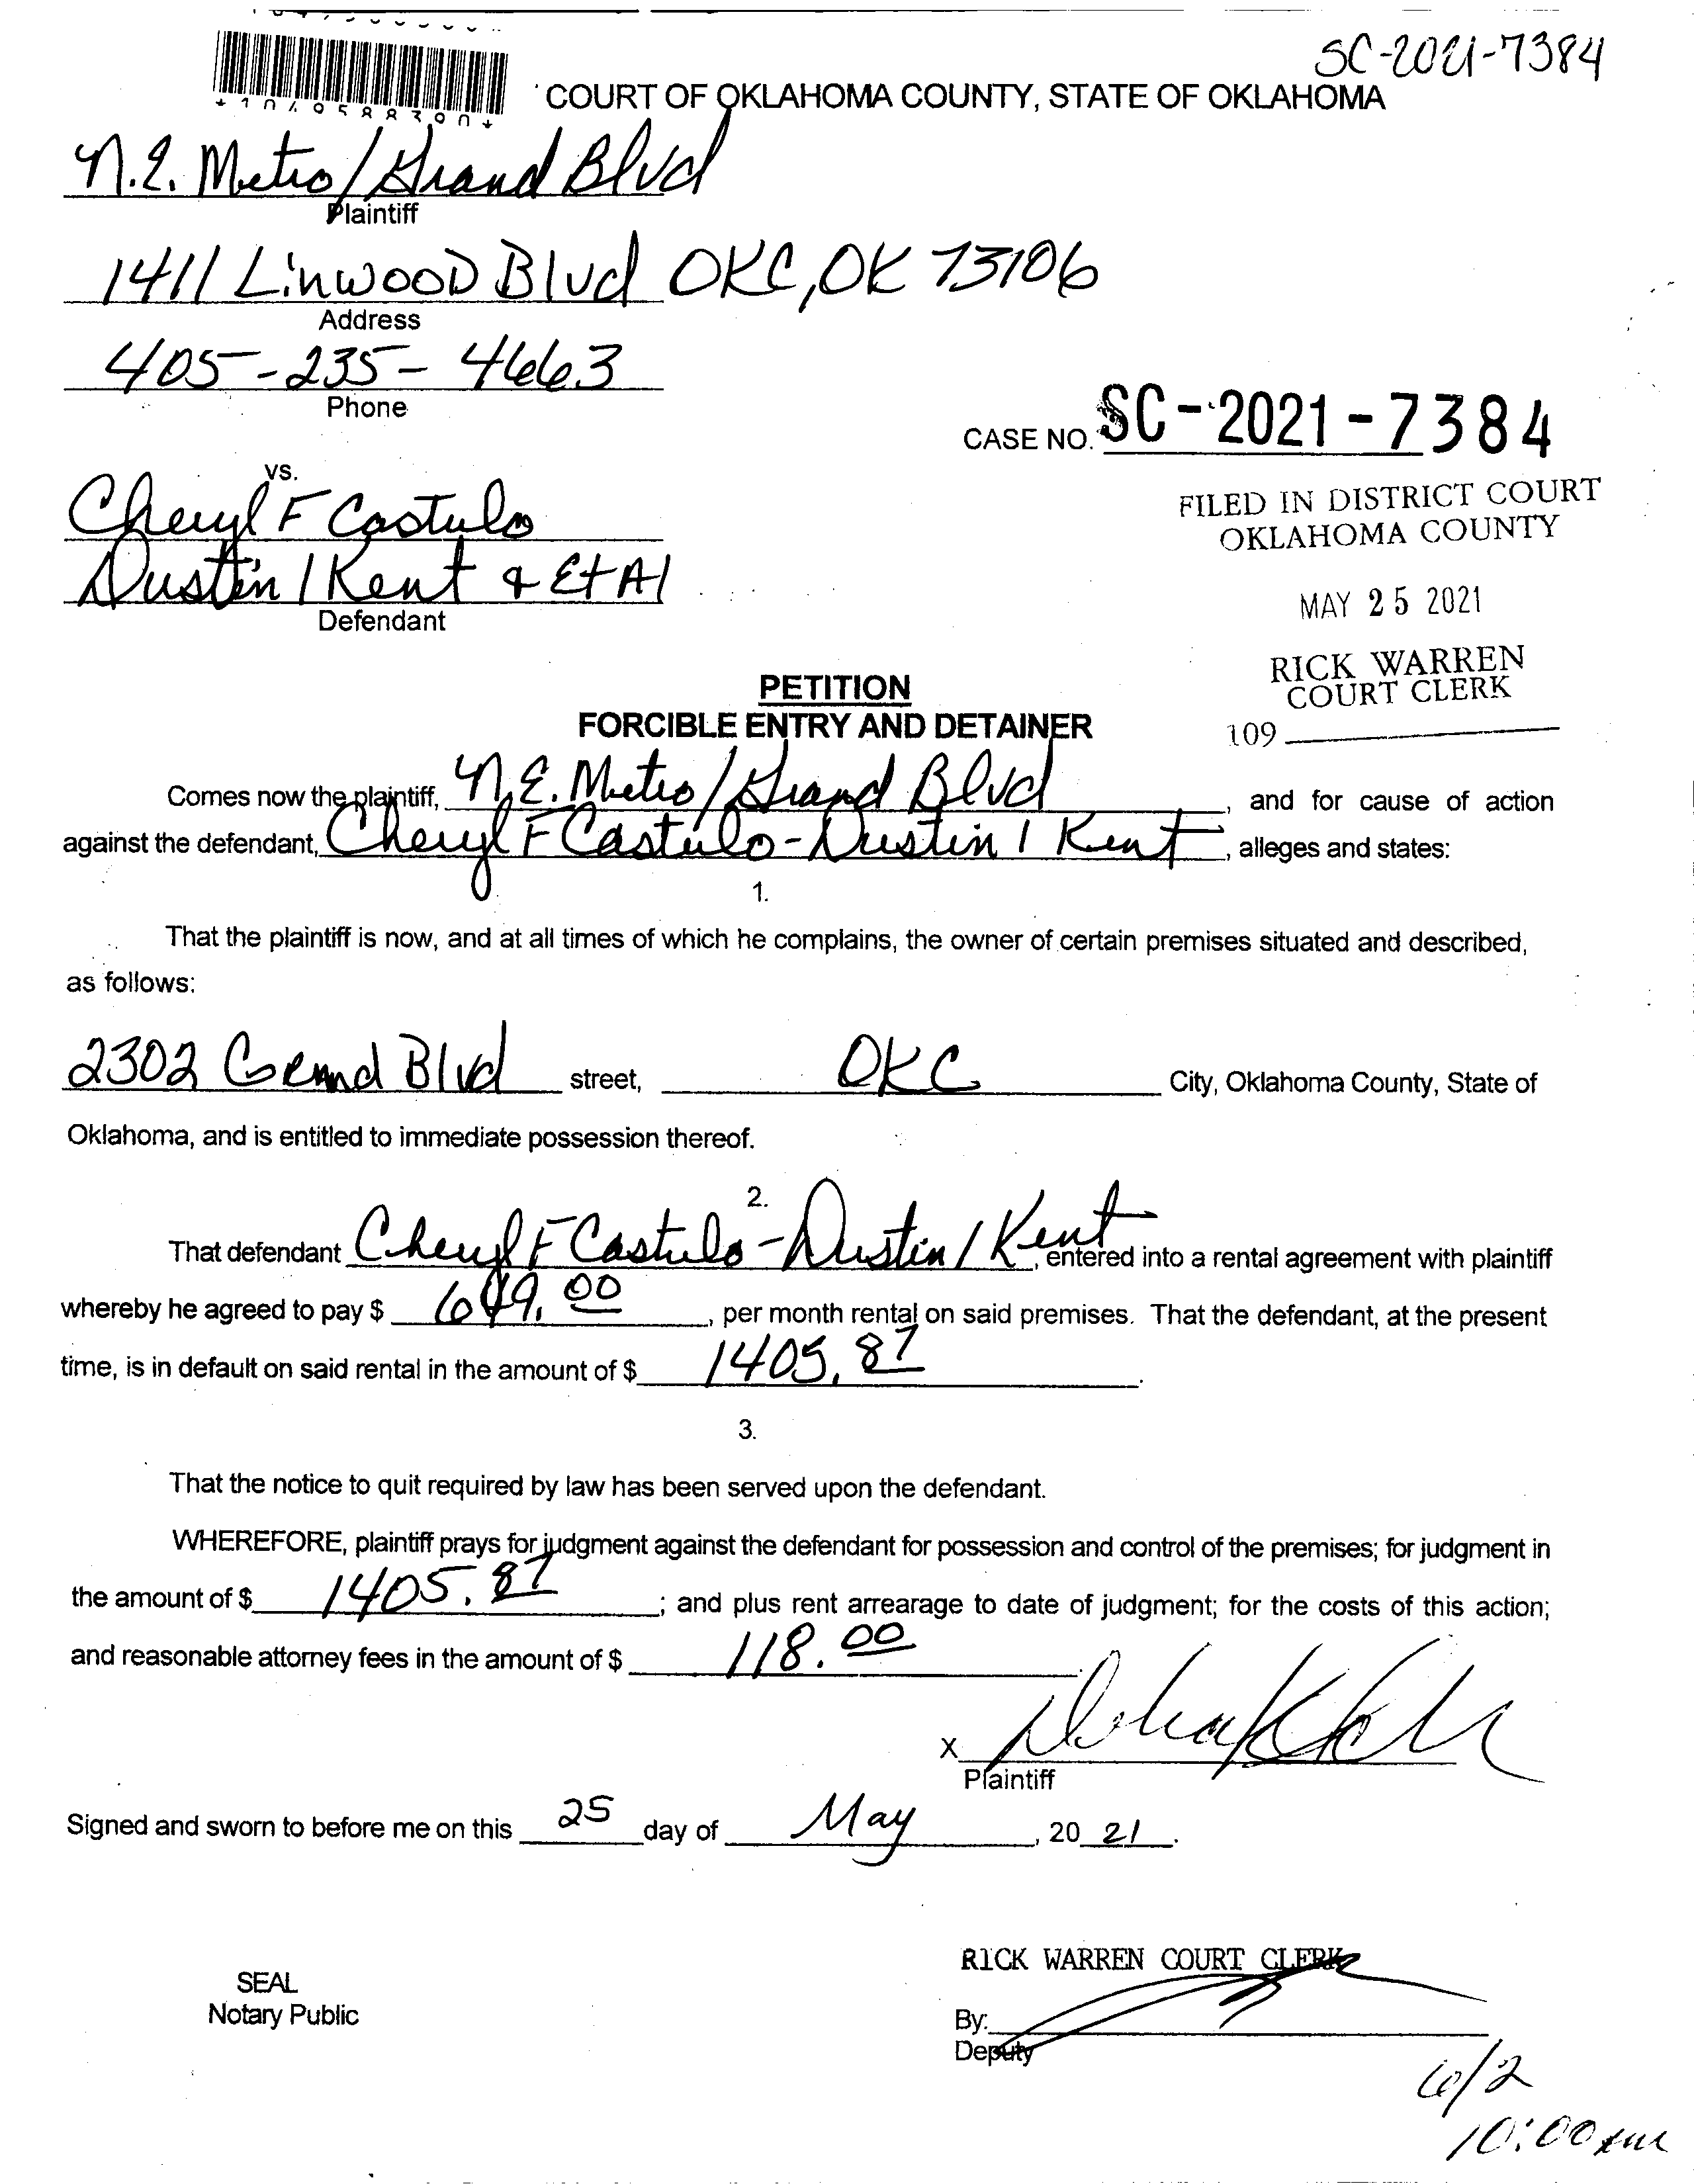 SC-2021-7384
COURT OF OKLAHOMA COUNTY, STATE OF OKLAHOMA
N.E. Metro/Grand Blvd
Plaintiff
1411 LinwooD Blvd OKC, OK 73106
Address
405-235-4663
Phone
CASE NO. SC-2021-7384
vs.
Cheryl F Castulo
Dustin I Kent & Et Al
Defendant
FILED IN DISTRICT COURT
OKLAHOMA COUNTY
MAY 25 2021
RICK WARREN
COURT CLERK
109
PETITION
FORCIBLE ENTRY AND DETAINER
Comes now the plaintiff, N.E. Metro/Grand Blvd, and for cause of action
against the defendant, Cheryl F Castulo-Dustin I Kent, alleges and states:
1.
That the plaintiff is now, and at all times of which he complains, the owner of certain premises situated and described,
as follows:
2302 Grand Blvd street, OKC City, Oklahoma County, State of
Oklahoma, and is entitled to immediate possession thereof.
2.
That defendant Cheryl F Castulo-Dustin I Kent, entered into a rental agreement with plaintiff
whereby he agreed to pay $ 649.00, per month rental on said premises. That the defendant, at the present
time, is in default on said rental in the amount of $ 1405.87.
3.
That the notice to quit required by law has been served upon the defendant.
WHEREFORE, plaintiff prays for judgment against the defendant for possession and control of the premises; for judgment in
the amount of $ 1405.87; and plus rent arrearage to date of judgment; for the costs of this action;
and reasonable attorney fees in the amount of $ 118.00
X
Plaintiff
Signed and sworn to before me on this 25 day of May, 20 21.
RICK WARREN COURT CLERK
SEAL
Notary Public
By:
Deputy
6/2
10:00am